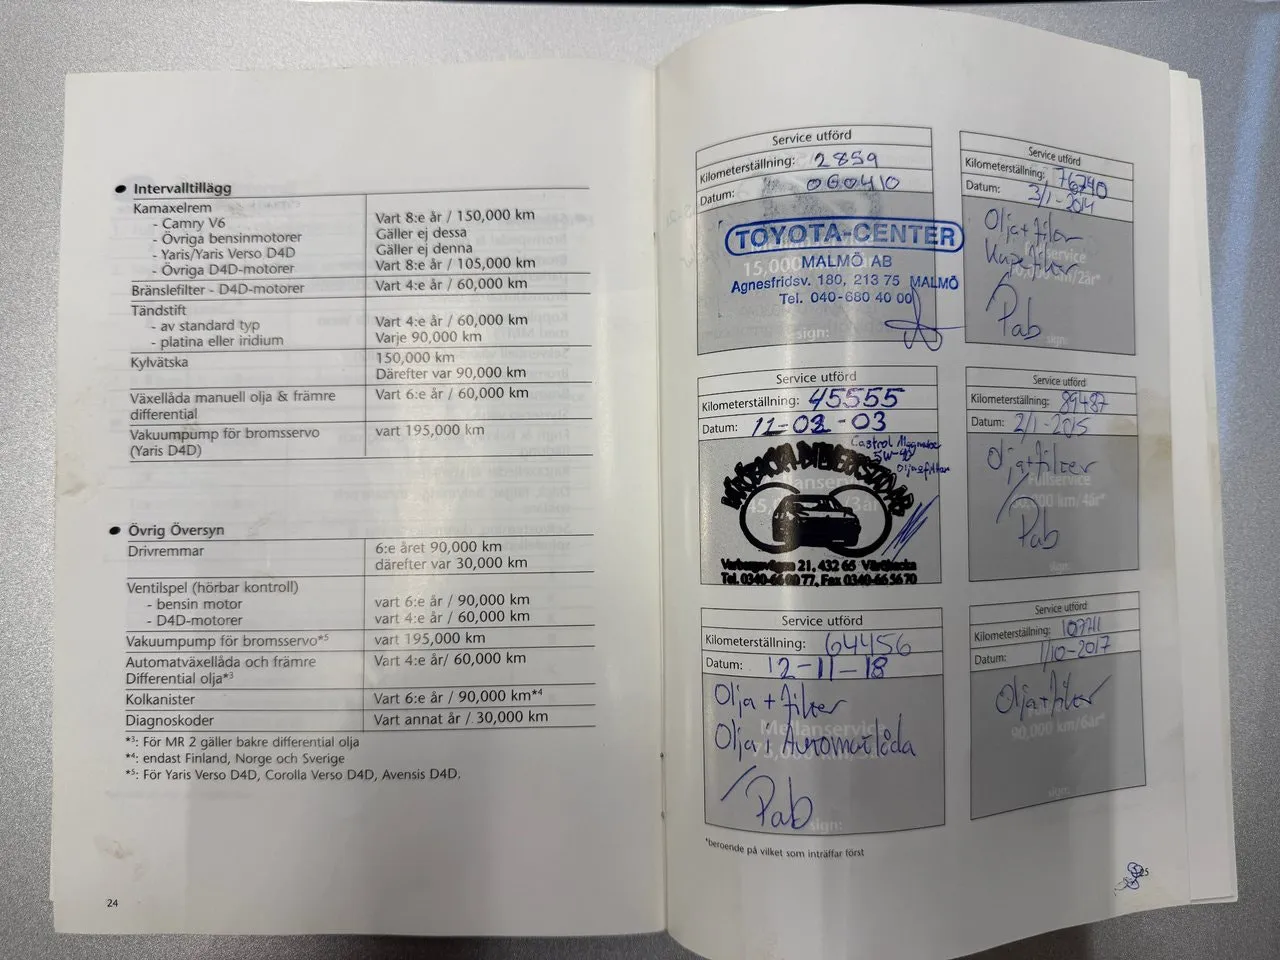 Intervalltillägg
Kamaxelrem
- Camry V6 Vart 8:e år / 150,000 km
- Övriga bensinmotorer Gäller ej dessa
- Yaris/Yaris Verso D4D Gäller ej denna
- Övriga D4D-motorer Vart 8:e år / 105,000 km
Bränslefilter - D4D-motorer Vart 4:e år / 60,000 km
Tändstift
- av standard typ Vart 4:e år / 60,000 km
- platina eller iridium Varje 90,000 km
Kylvätska 150,000 km
Därefter var 90,000 km
Växellåda manuell olja & främre Vart 6:e år / 60,000 km
differential
Vakuumpump för bromsservo vart 195,000 km
(Yaris D4D)
Övrig Översyn
Drivremmar 6:e året 90,000 km
därefter var 30,000 km
Ventilspel (hörbar kontroll)
- bensin motor vart 6:e år / 90,000 km
- D4D-motorer vart 4:e år / 60,000 km
Vakuumpump för bromsservo*5 vart 195,000 km
Automatväxellåda och främre Vart 4:e år/ 60,000 km
Differential olja*3
Kolkanister Vart 6:e år / 90,000 km*4
Diagnoskoder Vart annat år / 30,000 km
*3: För MR 2 gäller bakre differential olja
*4: endast Finland, Norge och Sverige
*5: För Yaris Verso D4D, Corolla Verso D4D, Avensis D4D.
24
Service utförd
Kilometerställning: 2859
Datum: 060410
TOYOTA-CENTER
MALMÖ AB
15,000
Agnesfridsv. 180, 213 75 MALMÖ
Tel. 040-680 40 00
sign:
Service utförd
Kilometerställning: 45555
Datum: 11-02-03
Castrol
5W-40
Olja+filter
Mellanservice
Varbergsvägen 21, 432 65 Väröbacka
Tel. 0340-66 00 77, Fax 0340-66 56 70
Service utförd
Kilometerställning: 64456
Datum: 12-11-18
Olja + filter
Mellanservice
Olja i Automatlåda
Pab
sign:
*beroende på vilket som inträffar först
Service utförd
Kilometerställning: 76740
Datum: 3/1-2014
Olja+filter
Kupefilter
Pab
sign:
Service utförd
Kilometerställning: 89487
Datum: 2/1-2015
Olja+filter
Fullservice
Pab
sign:
Service utförd
Kilometerställning: 107211
Datum: 1/10-2017
Olja+filter
90,000 km/6år*
sign:
25